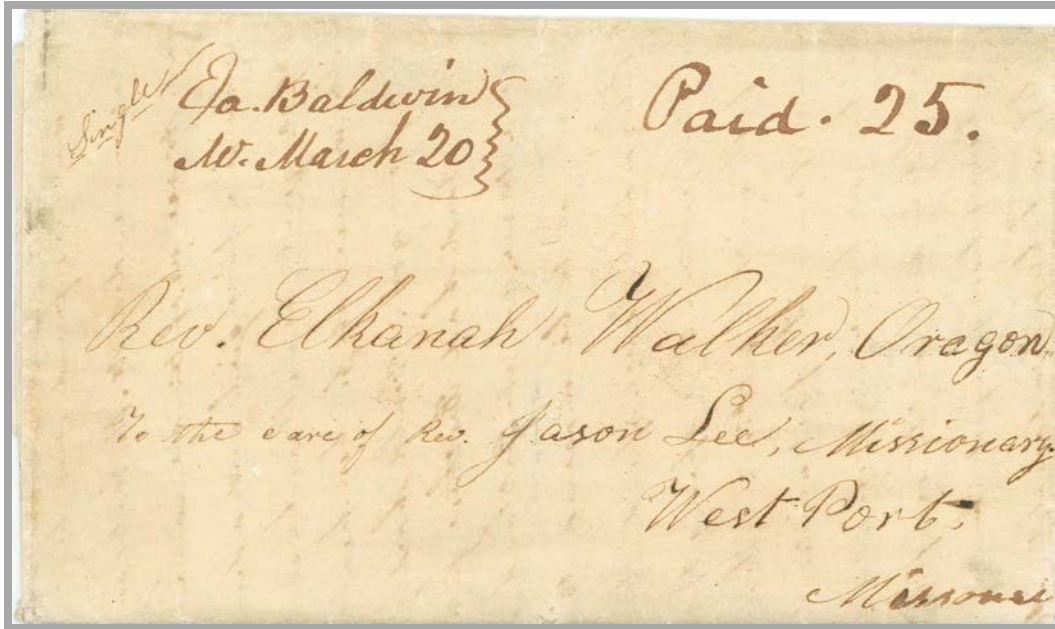 Single
Ea. Baldwin
Me. March 20
Paid. 25.
Rev. Elkanah Walker, Oragon.
To the care of Rev. Jason Lee, Missionary.
West Port,
Missouri